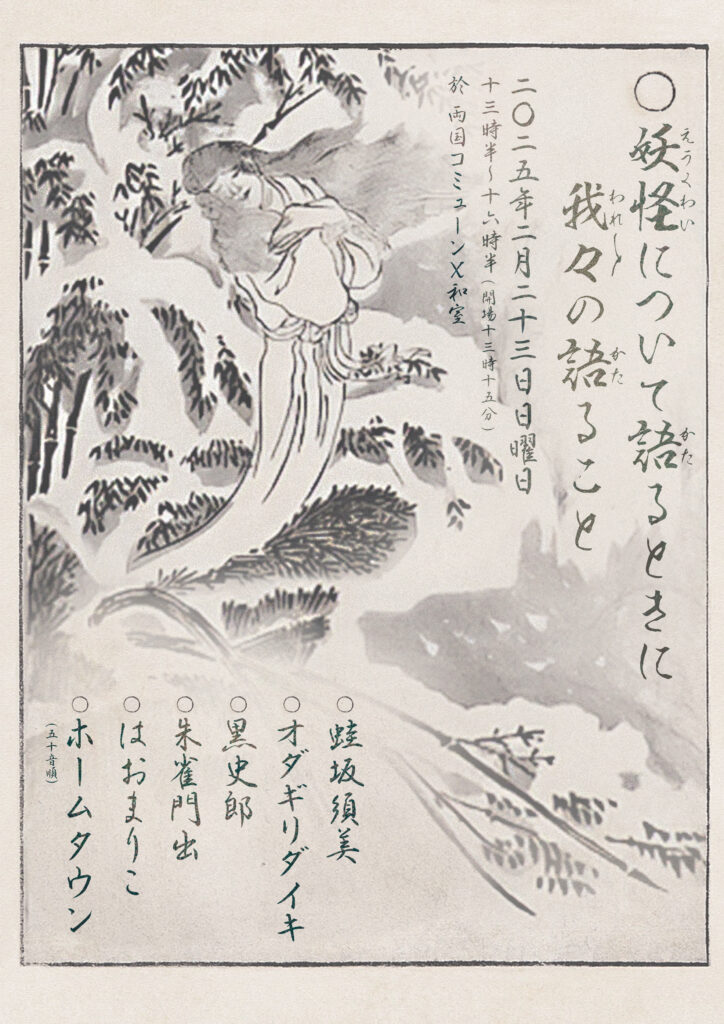 ○妖怪について語るときに
えうくわい
かた
我々の語ること
われ〳〵
かた
二〇二五年二月二十三日日曜日
十三時半〜十六時半（開場十三時十五分）
於 両国コミューン×和室
○蛙坂須美
○オダギリダイキ
○黒史郎
○朱雀門出
○はおまりこ
○ホームタウン
（五十音順）